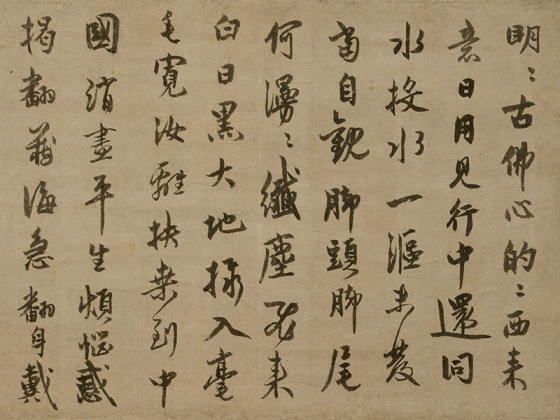 明〻古佛心的〻西来
意日用見行中還同
水投水一漚未發
當自觀脚頭脚尾
何漫〻纖塵飛来
白日黑大地入毫
毛寬汝離扶桑到中
國消盡平生煩惱惑
揭翻藏海急翻身戴